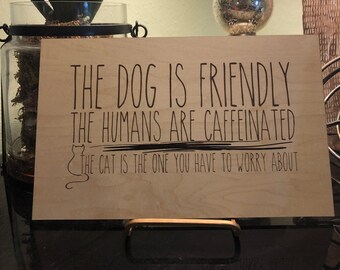 THE DOG IS FRIENDLY
THE HUMANS ARE CAFFEINATED
THE CAT IS THE ONE YOU HAVE TO WORRY ABOUT